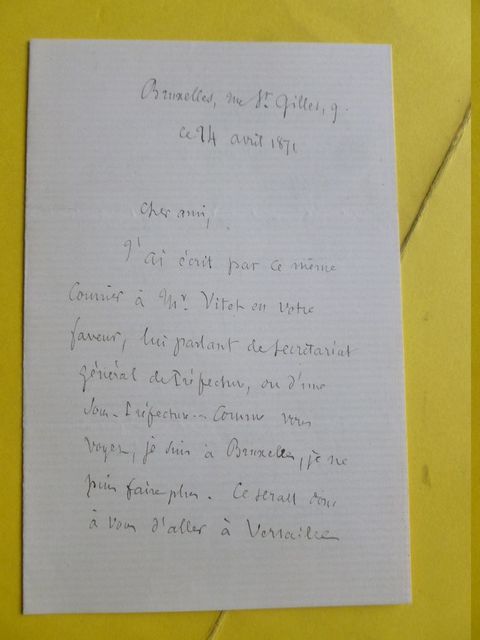 Bruxelles, rue St. Gilles, 9.
ce 24 avril 1871
Cher ami,
J'ai écrit par ce même
Courrier à Mr. Vitet en votre
faveur, lui parlant de secrétariat
général de Préfecture, ou d'une
Sous-Préfecture. Comme vous
voyez, je suis à Bruxelles, je ne
puis faire plus. Ce serait donc
à vous d'aller à Versailles